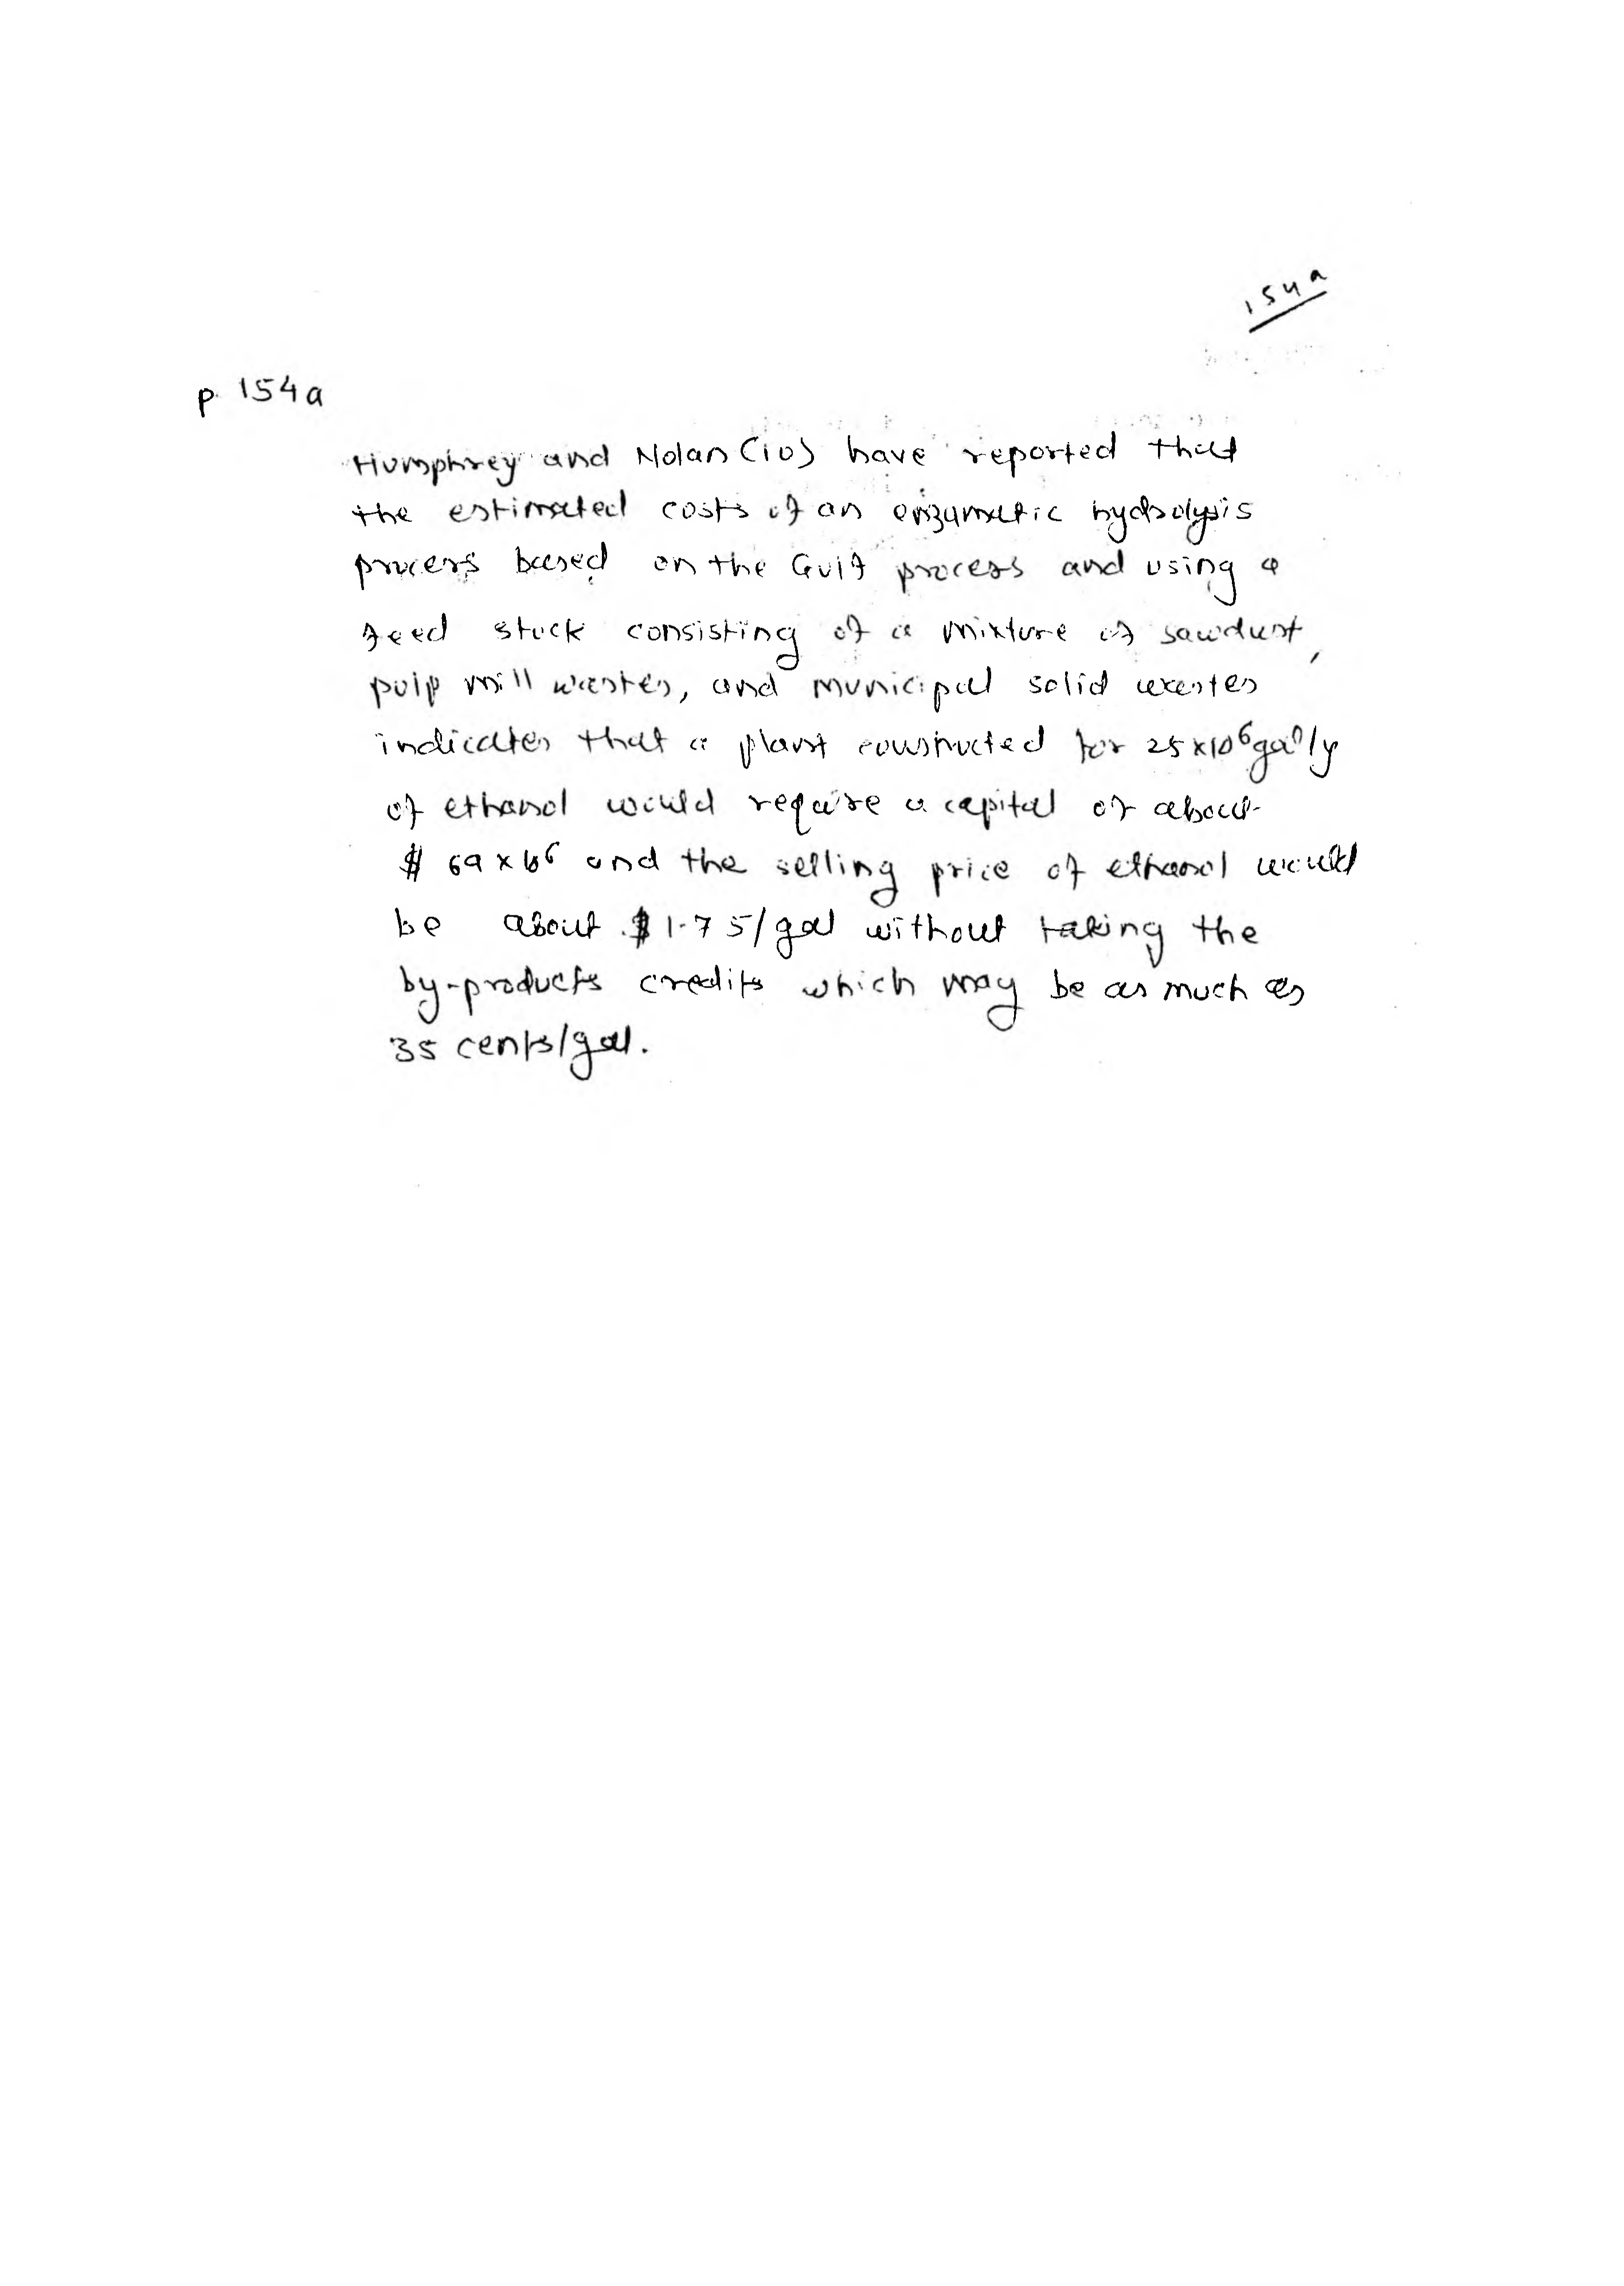 154a
p. 154a
Humphrey and Nolan (10) have reported that
the estimated costs of an enzymatic hydrolysis
process based on the Gulf process and using a
feed stock consisting of a mixture of sawdust,
pulp mill wastes, and municipal solid wastes
indicates that a plant constructed for 25×10⁶ gal/y
of ethanol would require a capital of about
$ 69×10⁶ and the selling price of ethanol would
be about $1.75/gal without taking the
by-products credits which may be as much as
35 cents/gal.